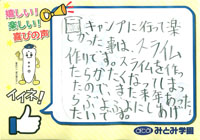 嬉しい!
楽しい!
喜びの声
イイネ!
キャンプに行って楽
しかった事は、スライム
作りです。スライムを作っ
たらかたくなってしまっ
たので、また事年あった
らぷよぷよにしあげ
たいです。
みとみ学園